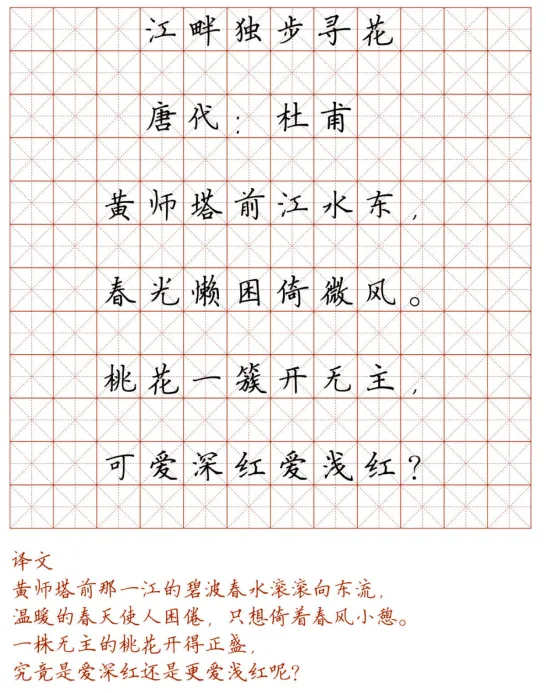 江畔独步寻花
唐代：杜甫
黄师塔前江水东，
春光懒困倚微风。
桃花一簇开无主，
可爱深红爱浅红？
译文
黄师塔前那一江的碧波春水滚滚向东流，
温暖的春天使人困倦，只想倚着春风小憩。
一株无主的桃花开得正盛，
究竟是爱深红还是更爱浅红呢？